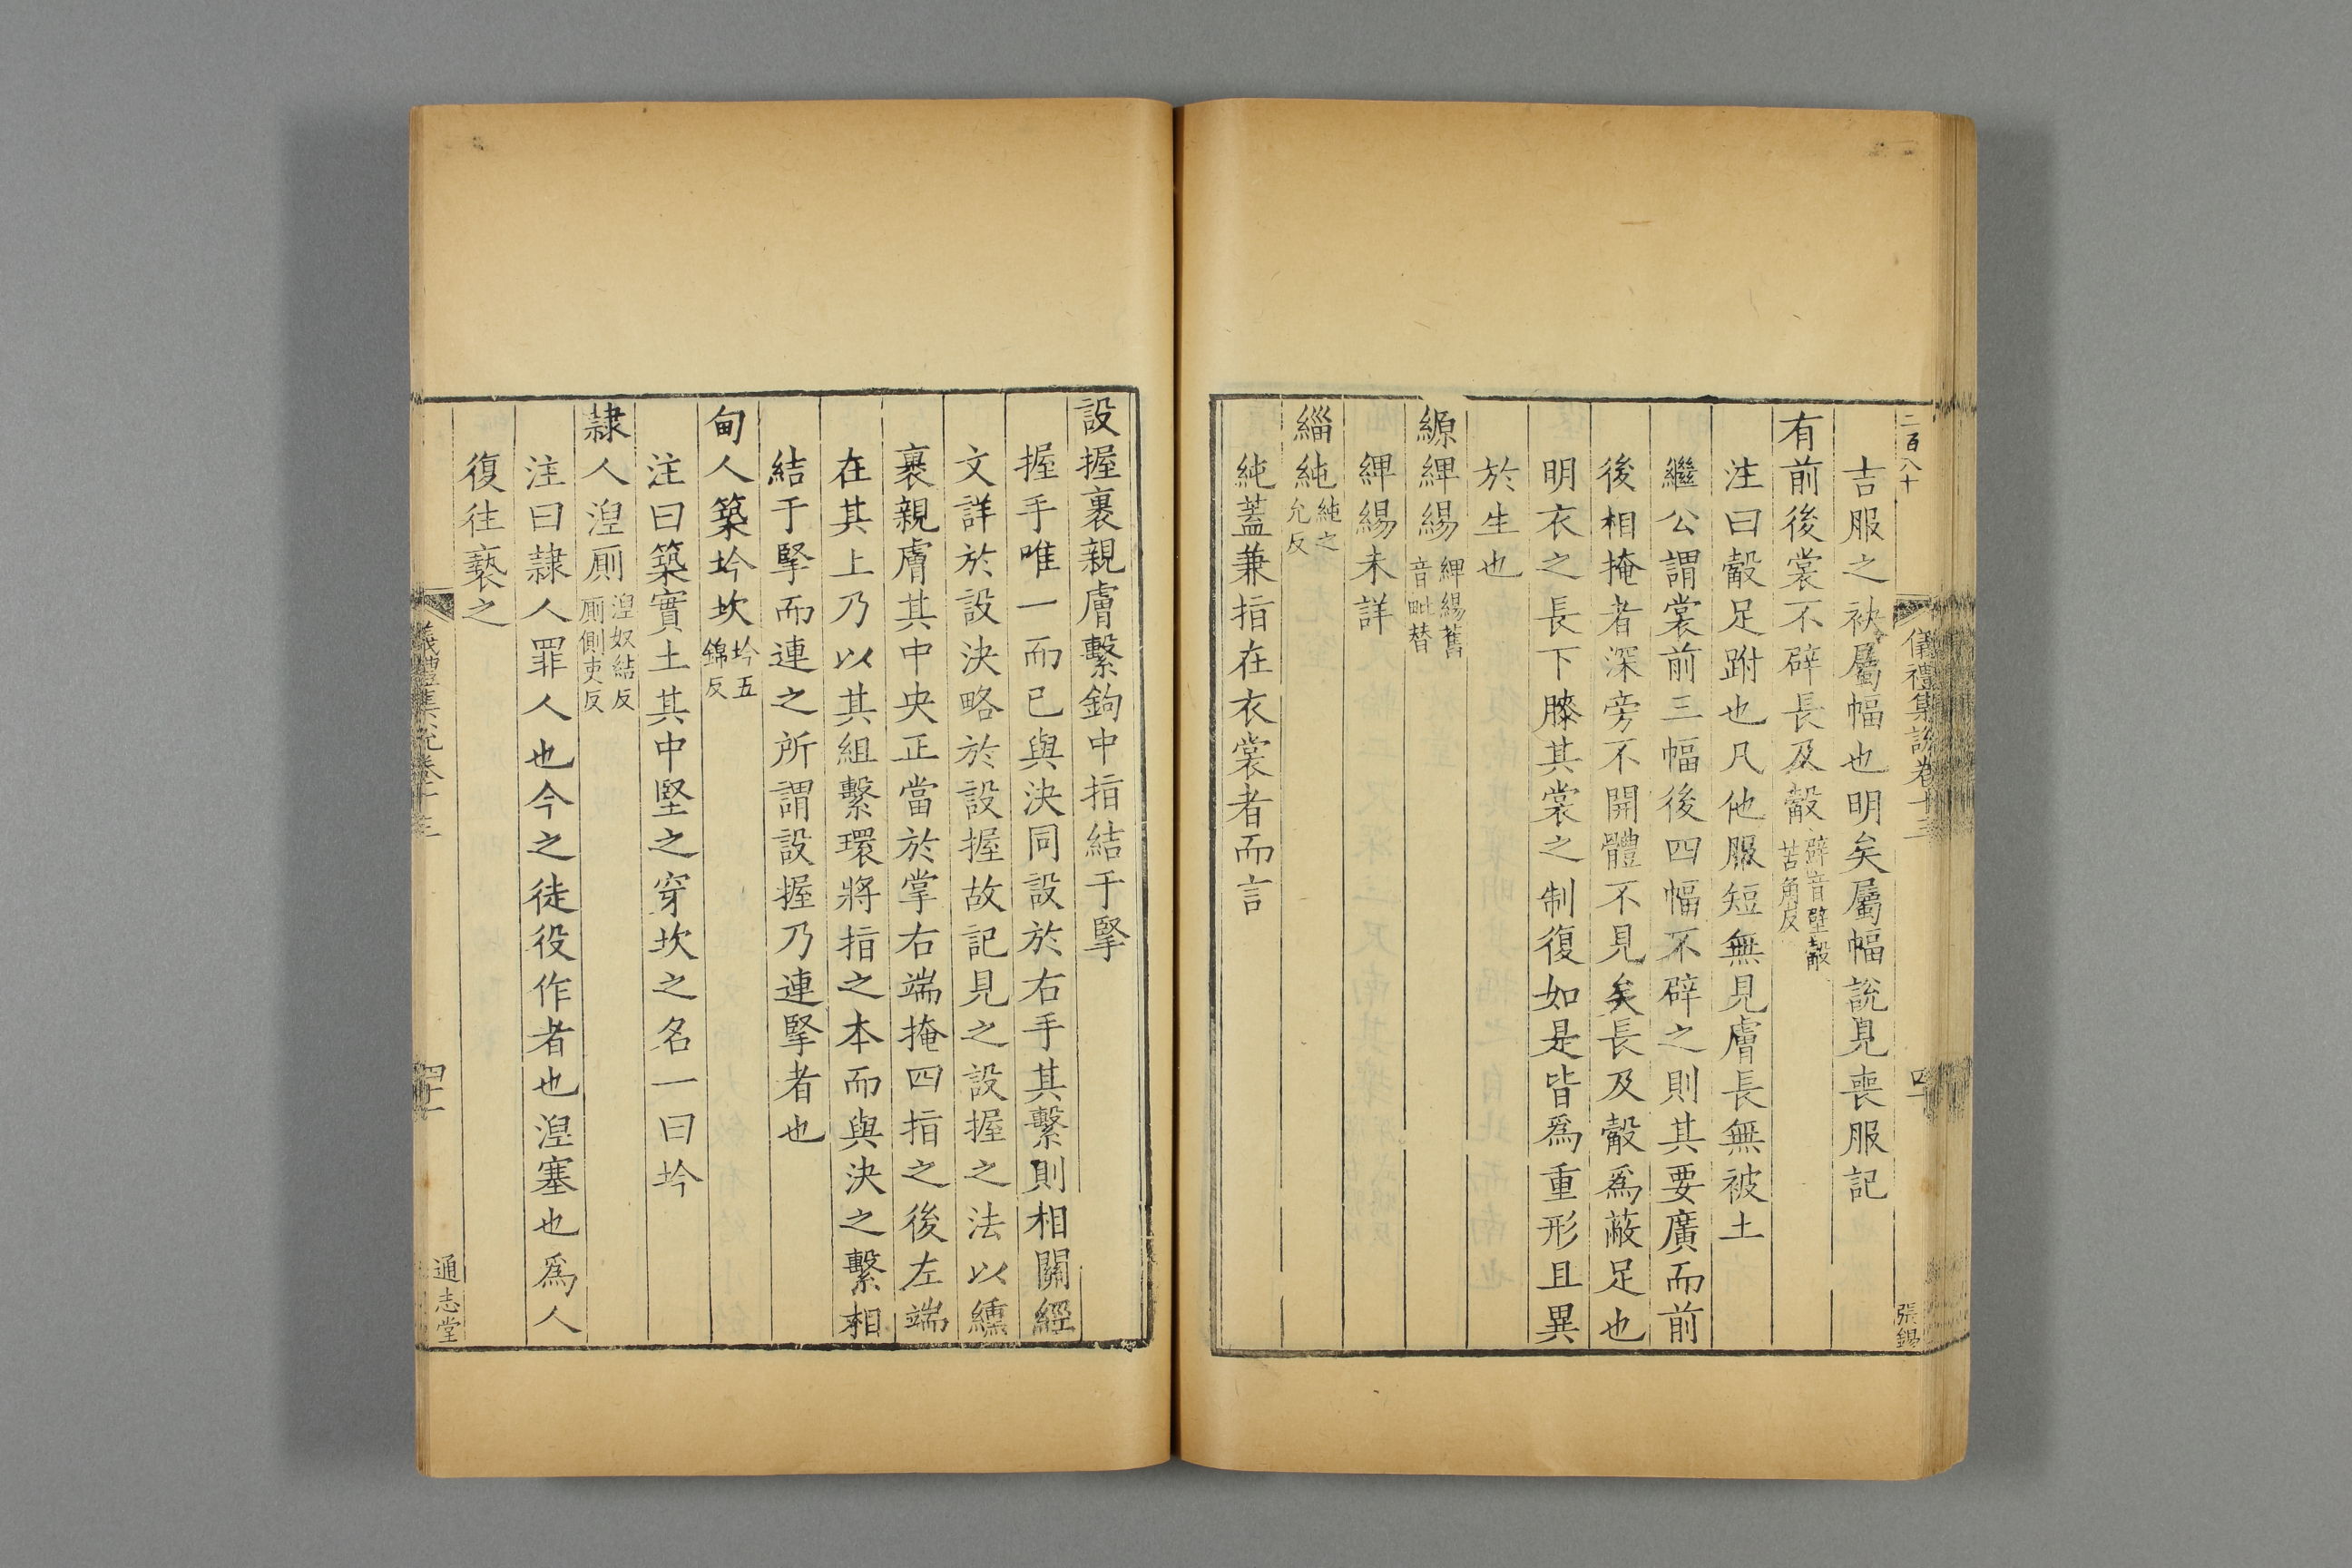 二百八十
儀禮集說卷十三
四十
張錫
吉服之袂屬幅也明矣屬幅說見喪服記
有前後裳不辟長及觳辟音壁觳苦角反
注曰觳足跗也凡他服短無見膚長無被土
繼公謂裳前三幅後四幅不辟之則其要廣而前
後相掩者深旁不開體不見矣長及觳爲蔽足也
明衣之長下膝其裳之制復如是皆爲重形且異
於生也
縓綼緆綼緆舊音毗替
綼緆未詳
緇純純之允反
純蓋兼指在衣裳者而言
設握裹親膚繫鉤中指結于掔
握手唯一而已與決同設於右手其繫則相關經
文詳於設決略於設握故記見之設握之法以纁
裹親膚其中央正當於掌右端掩四指之後左端
在其上乃以其組繫環將指之本而與決之繫相
結于掔而連之所謂設握乃連掔者也
甸人築坅坎坅五錦反
注曰築實土其中堅之穿坎之名一曰坅
隸人涅厠涅奴結反厠側吏反
注曰隸人罪人也今之徒役作者也涅塞也爲人
復往褻之
儀禮集說卷十三
四十一
通志堂